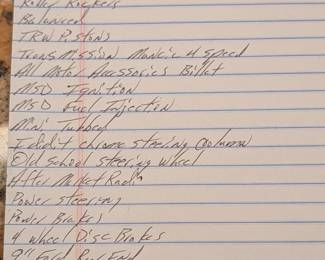 Roller Rockers
Balanced
TRW Pistons
Transmission Muncie 4 speed
All Motor Accessories Billet
MSD Ignition
MSD Fuel Injection
Mini Tubbed
Ididit chrome steering coolumn
Old school steering wheel
After Market Radio
Power steering
Power Brakes
4 wheel Disc Brakes
9" Ford Rear End